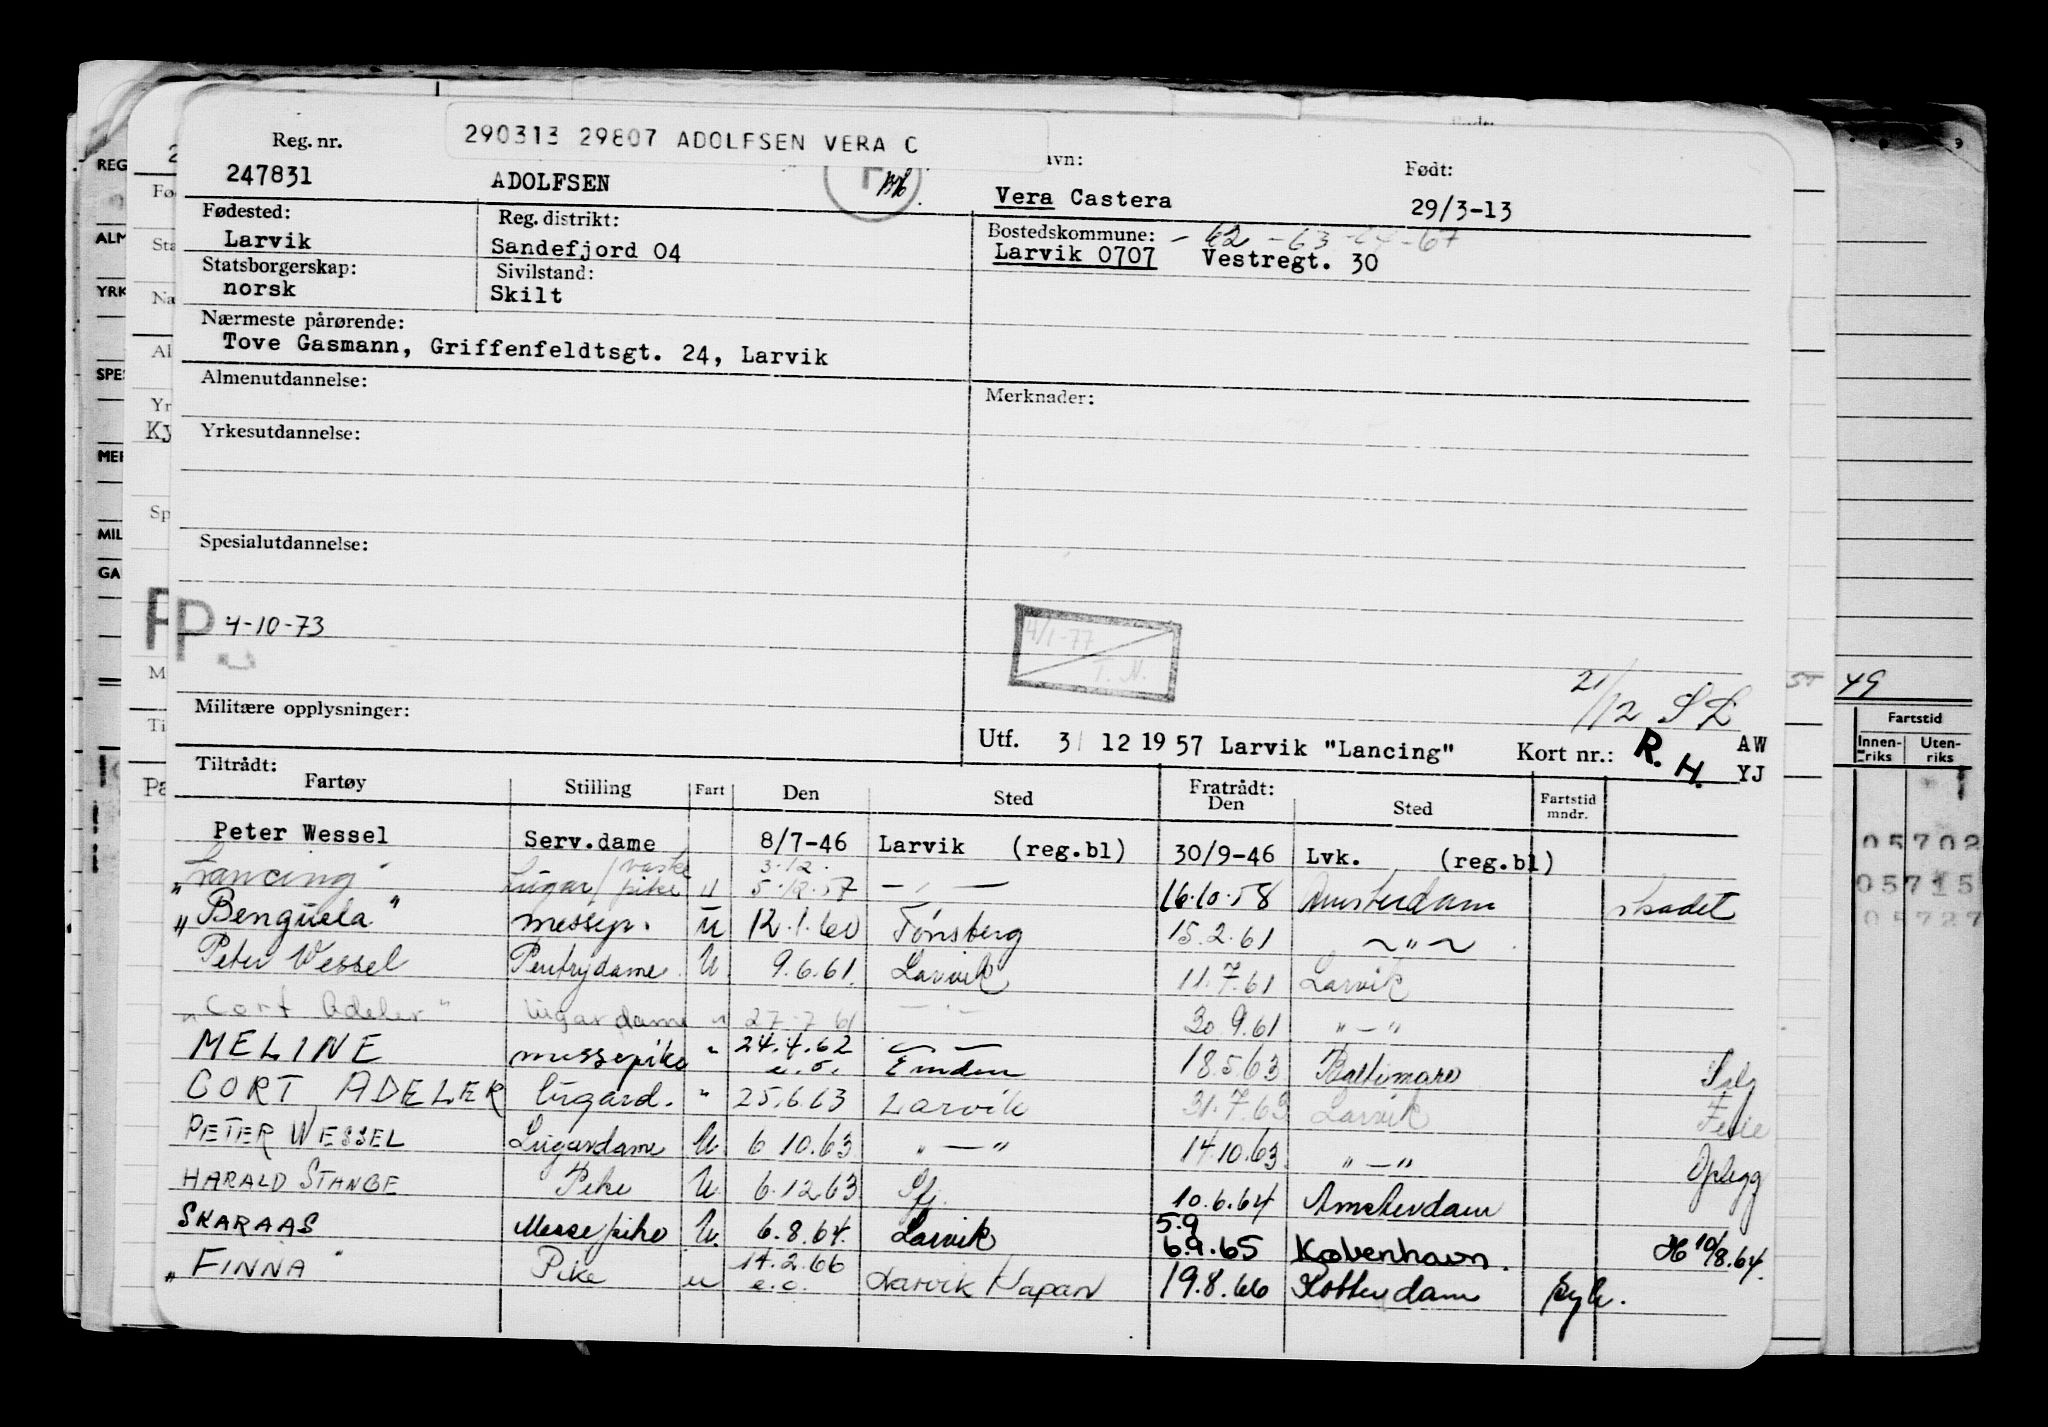 290313 29807 ADOLFSEN VERA C
Reg. nr.
247831
ADOLFSEN
avn:
Vera Castera
Født:
29/3-13
Fødested:
Larvik
Reg. distrikt:
Sandefjord 04
Bostedskommune: - 62 - 63 - 64 - 67
Larvik 0707 Vestregt. 30
Statsborgerskap:
norsk
Sivilstand:
Skilt
Nærmeste pårørende:
Tove Gasmann, Griffenfeldtsgt. 24, Larvik
Almenutdannelse:
Merknader:
Yrkesutdannelse:
Spesialutdannelse:
P 4-10-73
4/1-77
T. N.
21/12 SL
Militære opplysninger:
Utf. 31 12 1957 Larvik "Lancing" Kort nr.: R. H. AW
YJ
Tiltrådt:
Fartøy Stilling Fart Den Sted Fratrådt: Den Sted Fartstid mndr.
Peter Wessel Serv.dame 8/7-46 Larvik (reg.bl) 30/9-46 Lvk. (reg.bl)
"Lancing" Lugar/vaske pike u 3.12. 5.12.57 — " — 16.10.58 Amsterdam skadet
"Benguela" messep. u 12.1.60 Tønsberg 15.2.61 ~ " ~
Peter Wessel Pentrydame U 9.6.61 Larvik 11.7.61 Larvik
"Cort Adeler" lugardame " 27-7 61 — " — 30 9.61 " — "
MELINE messepike " 24.4.62 e.o. Emden 18.5.63 Baltimore Salg
CORT ADELER lugard. " 25.6.63 Larvik 31.7.63 Larvik Ferie
PETER WESSEL Lugardame U 6 10.63 " — " 14.10.63 " — " Oplegg
HARALD STANGE Pike U 6.12.63 Sfj. 10.6.64 Amsterdam
SKARAAS Messepike U. 6.8.64. Larvik 5.9 6.9.65 København. H 10/8.64.
"FINNA" Pike u 14.2.66 e.o. Larvik/Japan 19.8.66 Rotterdam syk.
REG
ALM
YRK
SPES
MER
MIL
GA
Ky
49
Fartstid
Innen-riks
Uten-riks
05702
05715
05727